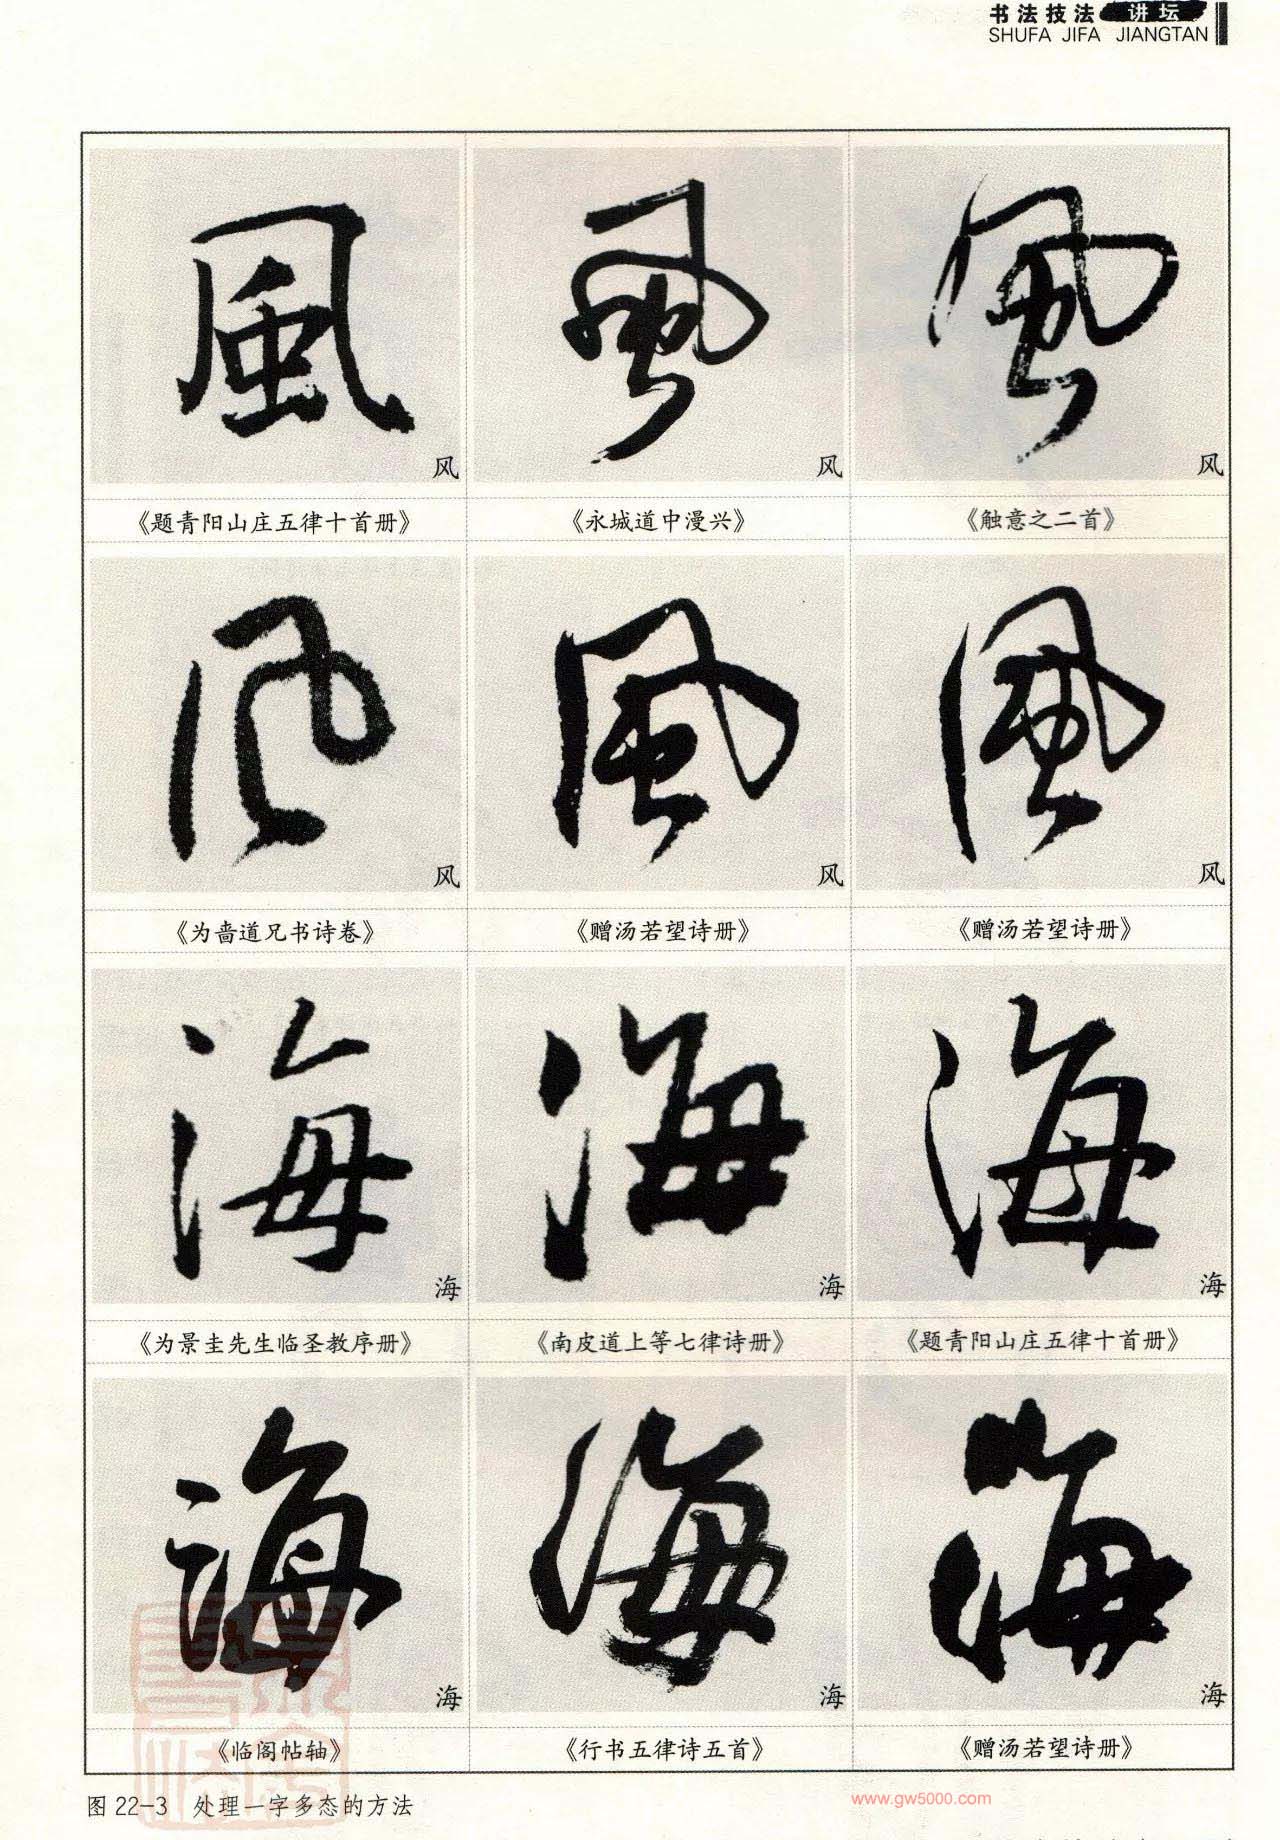 书法技法 讲坛
SHUFA JIFA JIANGTAN
風 風 風
风 风 风
《题青阳山庄五律十首册》 《永城道中漫兴》 《触意之二首》
风 風 風
风 风 风
《为啬道兄书诗卷》 《赠汤若望诗册》 《赠汤若望诗册》
海 海 海
海 海 海
《为景圭先生临圣教序册》 《南皮道上等七律诗册》 《题青阳山庄五律十首册》
海 海 海
海 海 海
《临阁帖轴》 《行书五律诗五首》 《赠汤若望诗册》
图 22-3 处理一字多态的方法
www.gw5000.com